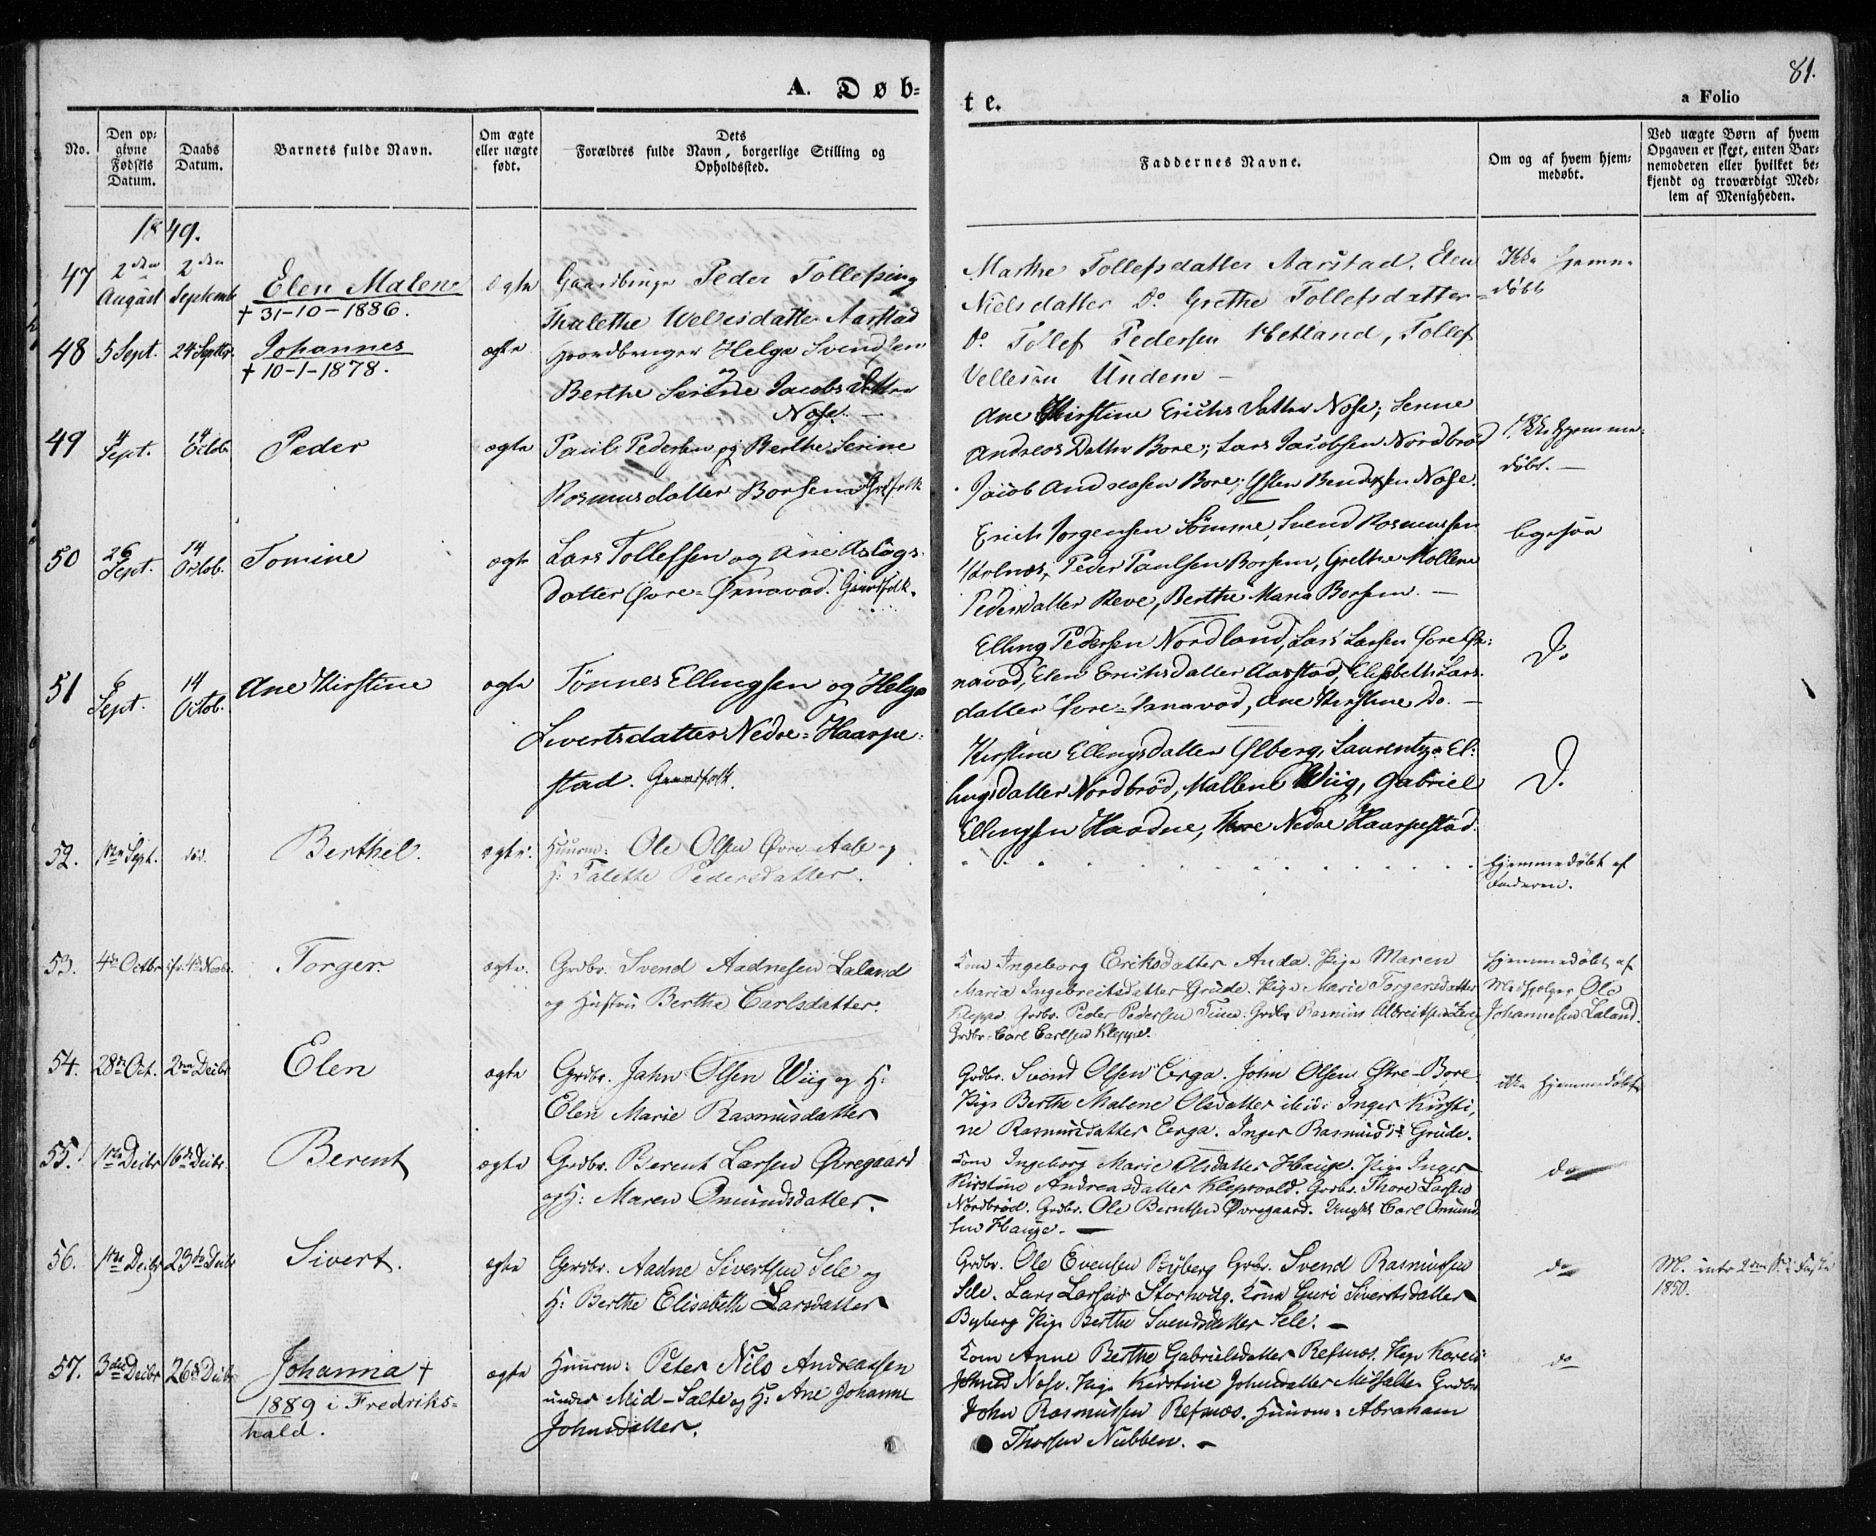 81.
A. Døb-
te.
a Folio
No.
Den op-
givne
Fødsels
Datum.
Daabs
Datum.
Barnets fulde Navn.
Om ægte
eller uægte
født.
Dets
Forældres fulde Navn, borgerlige Stilling og
Opholdssted.
Faddernes Navne.
Om og af hvem hjem-
medøbt.
Ved uægte Børn af hvem
Opgaven er skeet, enten Bar-
nemoderen eller hvilket be-
kjendt og troværdigt Med-
lem af Menigheden.
1849.
47
2den
August
2den
Septemb
Elen Malene
+ 31-10-1886.
ægte
Gaardbruger Peder Tollefsen og
Thalethe Wellesdatter Aarstad
Marthe Tollefsdatter Aarstad, Elen
Nielsdatter Do Grethe Tollefsdatter
Do Tollef Pedersen Hetland, Tollef
Vellesøn Undem –
Ikke hjemme-
døbt
48
5 Sept.
24 Septbr.
Johannes
+ 10-1-1878.
ægte
Gaardbruger Helge Svendsen
og
Berthe Serine Jacobsdatter
Nose. –
Ane Kirstine Erichsdatter Nose; Serine
Andreas Datter Bore; Lars Jacobsen Nordbrød
Jacob Andreasen Bore; Osten Bendixsen Nose.
Ikke hjemme-
døbt. –
49
4
Sept.
14
Octob.
Peder
ægte
Paul Pedersen og Berthe Serine
Rasmusdatter Borsem Grdfolk
Erich Jorgensen Sömme, Svend Rasmussen
Holnæs, Peder Paulsen Borsem, Grethe Mallene
Pedersdatter Reve, Berthe Maria Borsem. –
ligesaa
50
26
Sept.
14
Octob.
Tomine
ægte
Lars Tollefsen og Ane Aslags-
datter Øvre-Ørnavad. Gaardfolk.
Elling Pedersen Nordland, Lars Larsen Øvre Ør-
navad, Elen Erichsdatter Aarstad, Elisabeth Lars-
datter Øvre-Ørnavad, Ane Kirstine Do. –
D.
51
6
Sept.
14
Octob.
Ane Kirstine
ægte
Tønnes Ellingsen og Helga
Sivertsdatter Nedre-Haarpe-
stad. Gaardfolk.
Kirstine Ellingsdatter Ølberg, Laurentze El-
lingsdatter Nordbrød, Mallene Wiig, Gabriel
Ellingsen Haadne, Thore Nedre Haarpestad.
D.
52.
1ste Sept.
død.
Berthel.
ægte.
Huusm: Ole Olsen Øvre Aase og
H: Talette Pedersdatter.
Hjemmedøbt af
Faderen.
53.
4de Octbr
4de Novbr.
Torger.
ægte.
Grdbr. Svend Aadnesen Laland
og Hustru Berthe Carlsdatter.
Kone Ingeborg Eriksdatter Anda. Pige Maren
Maria Ingebreitsdatter Grude. Pige Marie Torgersdatter
Kleppe. Grdbr. Peder Pedersen Time. Grdbr Rasmus Albreitsen
Grdbr. Carl Carlsen Kleppe.
Hjemmedøbt af
Medhjelper Ole
Johannesen Laland.
54.
28de Oct.
2den Decbr
Elen
ægte
Grdbr. Jahn Olsen Wiig og H:
Elen Marie Rasmusdatter
Grdbr. Svend Olsen Erga. John Olsen Østre-Bore-
Pige Berthe Malene Olsdatter ibid: Inger Kirsti-
ne Rasmusdatter Erga. Inger Rasmusdt Grude.
ikke hjemmedøbt
55.
1ste Decbr
16de Decbr.
Berent
ægte
Grdbr. Berent Larsen Øvregaard
og H: Maren Omundsdatter.
Kone Ingeborg Marie Olsdatter Hauge. Pige Inger
Kirstine Andreasdatter Klepvold. Grdbr. Thore Larsen
Nordbrød. Grdbr. Ole Berntsen Øvregaard. Ungk. Carl Omund-
sen Hauge. –
do
56.
1ste Decbr
23de Decbr
Sivert.
ægte
Grdbr. Aadne Sivertsen Sele og
H: Berthe Elisabeth Larsdatter
Grdbr. Ole Evensen Byberg Grdbr. Svend Rasmussen
Sele. Lars Larsen Storhoug. Kone Guri Sivertsdatter
Byberg Pige Berthe Svendsdatter Sele. –
do
M. intr 2den S. i Faste
1850.
57.
3die Decbr
26de Decbr
Johanna +
1889 i Fredriks-
hald.
ægte
Huusm: Peter Nils Andreassen
under Mid-Salte og H: Ane Johanne
Johnsdatter.
Kone Anne Berthe Gabrielsdatter Refsnæs. Pige Karen
Johnsd Nose. Pige Kirstine Johnsdatter Midsalte. Grdbr
John Rasmussen Refsnæs. Huusm: Abraham
Thorsen Nubben. –
do